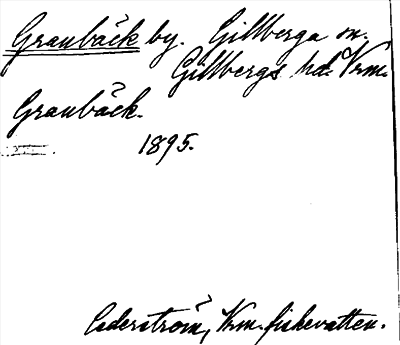 Graubäck by. Gillberga sn.
Gillbergs hd. Vrm.
Graubäck.
1895.
Cederström, Vrm. fiskevatten.